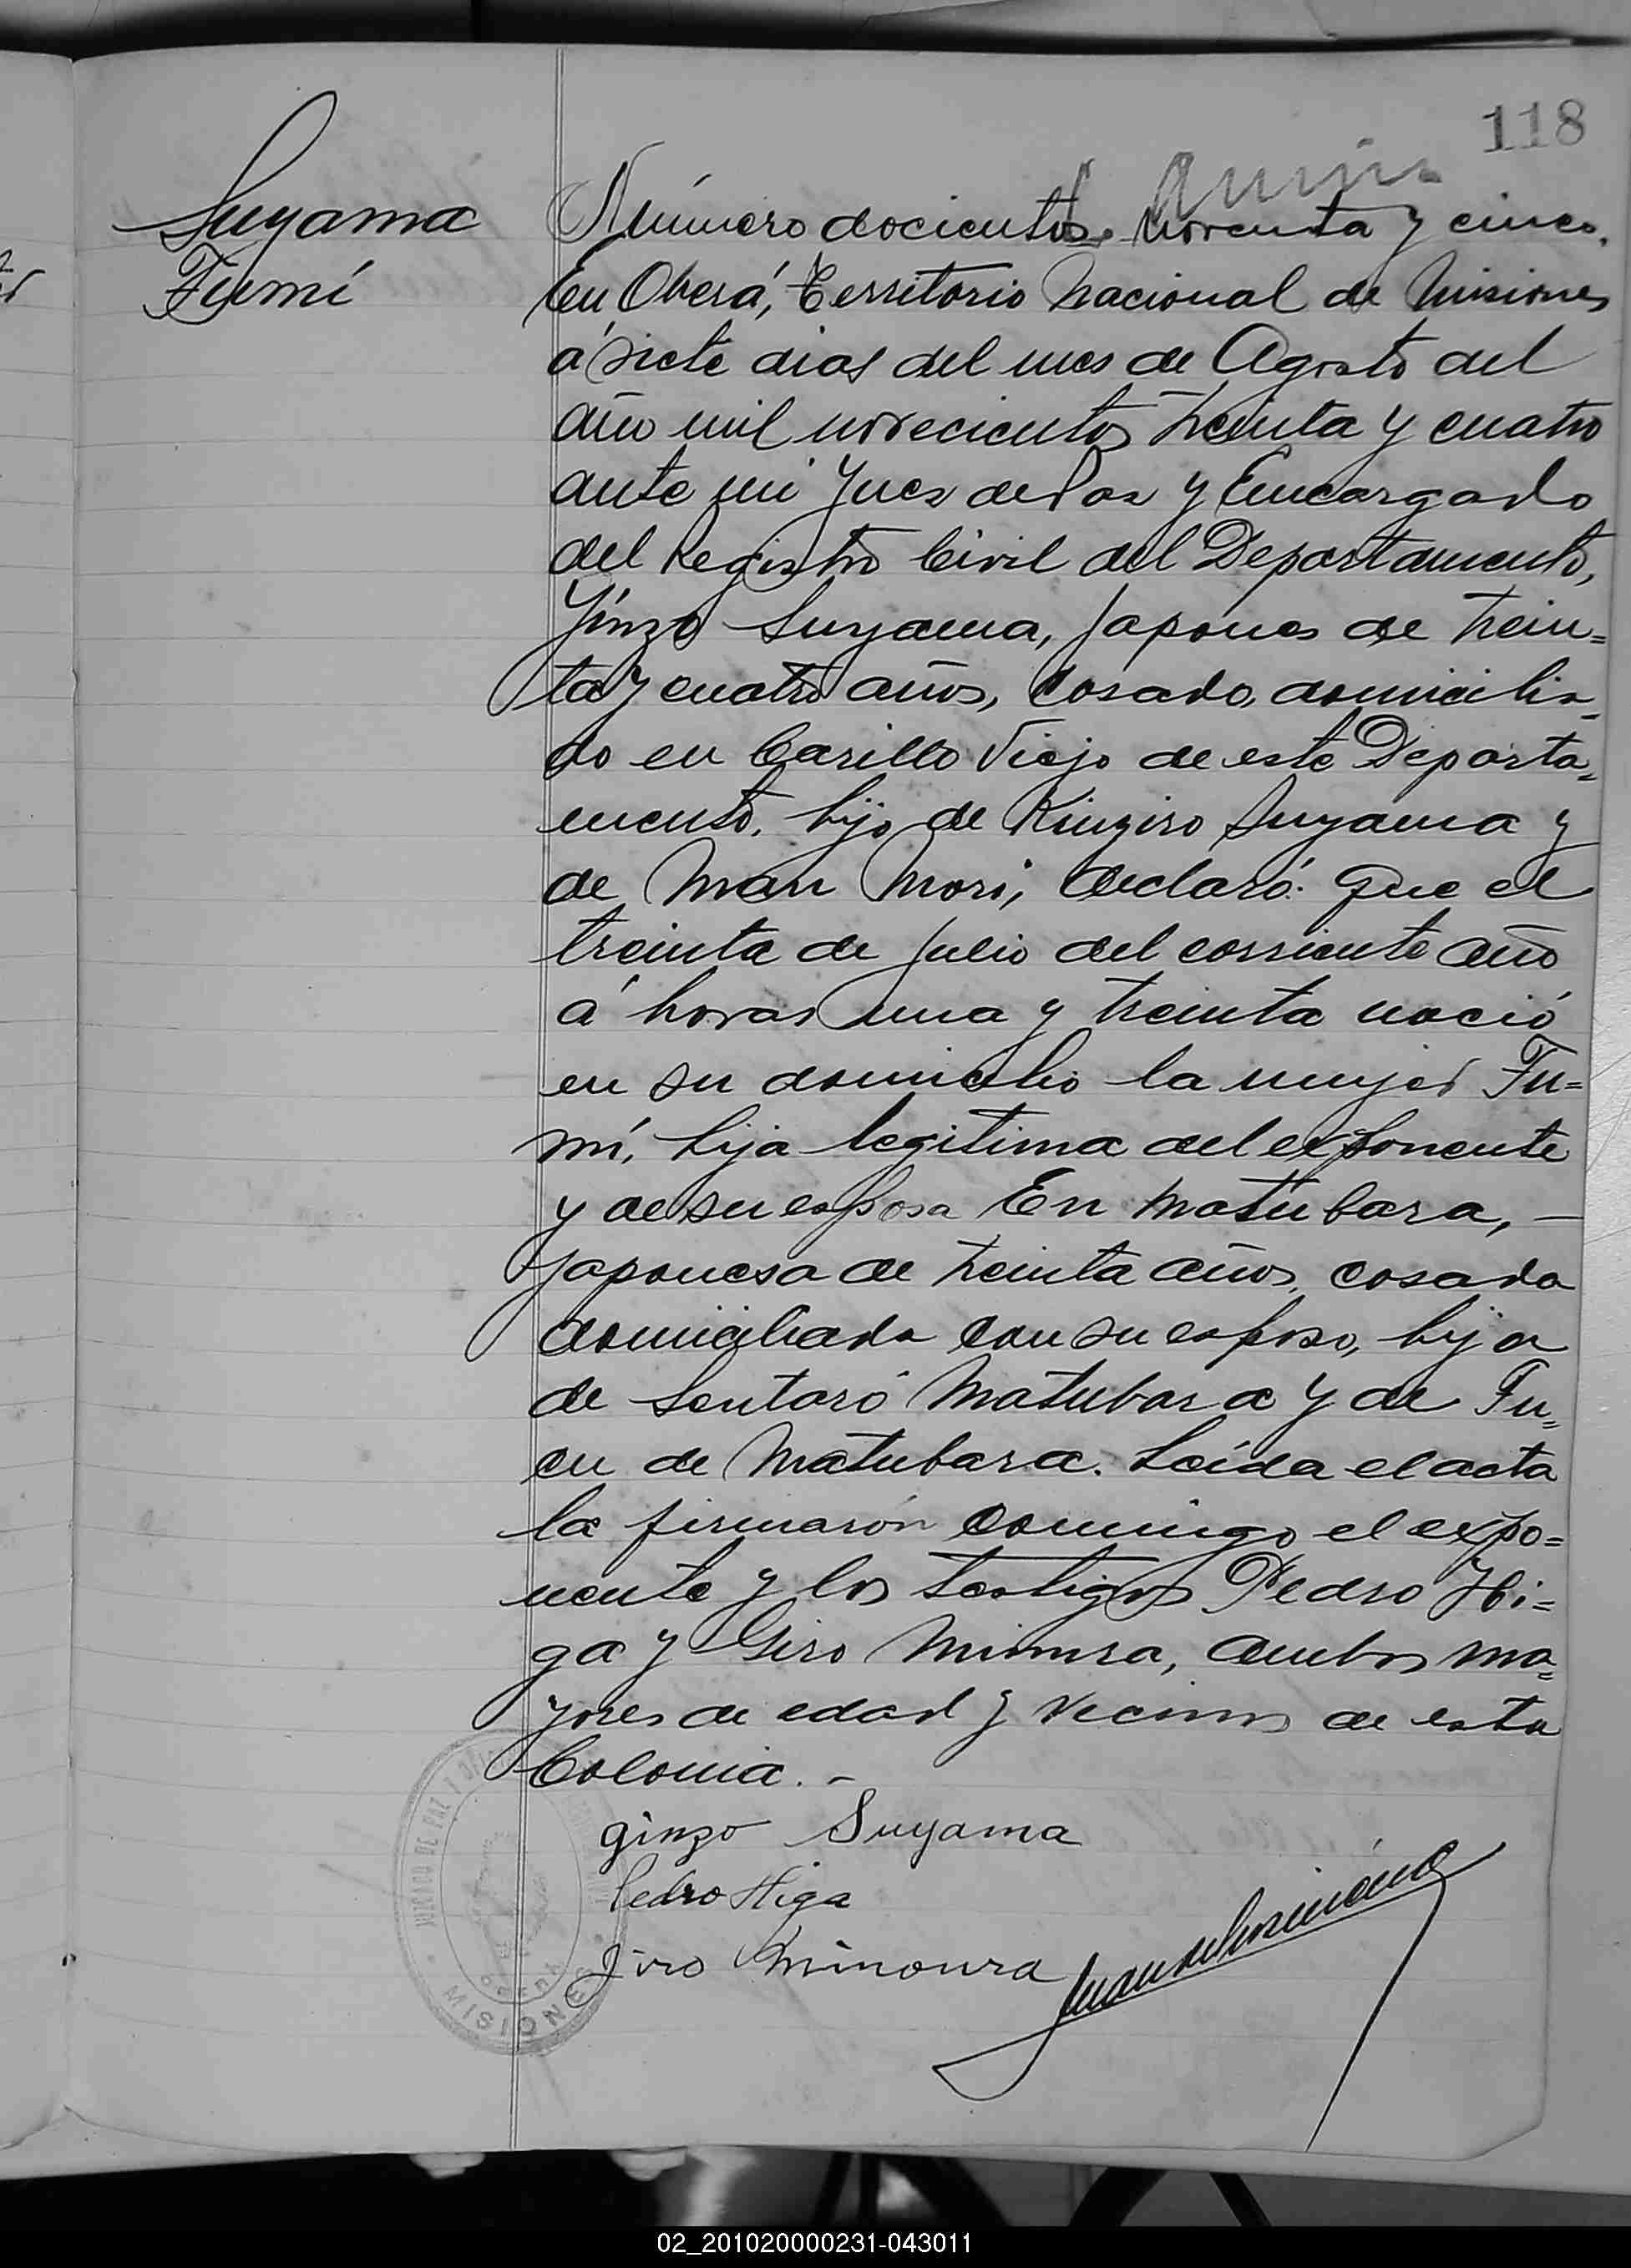 118
Suyama
Fumí
Número docientos noventa y cinco.
En Oberá, Territorio Nacional de Misiones
á siete dias del mes de Agosto del
año mil novecientos treinta y cuatro
ante mi Juez de Paz y Encargado
del Registro Civil del Departamento,
Yinzo Suyama, japones de trein=
ta y cuatro años, casado, domicilia=
do en Carillo Viejo de este Departa=
mento, hijo de Kinziro Suyama y
de Man Mori, declaró: Que el
treinta de julio del corriente año
á horas una y treinta nació
en su domicilio la mujer Fu=
mí, hija legitima del exponente
y de su esposa En Matubara, —
japonesa de treinta años, casada
domiciliada con su esposo, hija
de Sentaró Matubara y de Fu=
en de Matubara. Leída el acta
la firmarón conmigo el expo=
nente y los testigos Pedro Hi=
ga y Giro Minoura, ambos ma=
yores de edad y vecinos de esta
Colonia. –
ginzo Suyama
Pedro Higa
Jiro Minoura
JUZGADO DE PAZ Y
OBERÁ
MISIONES
02_201020000231-043011